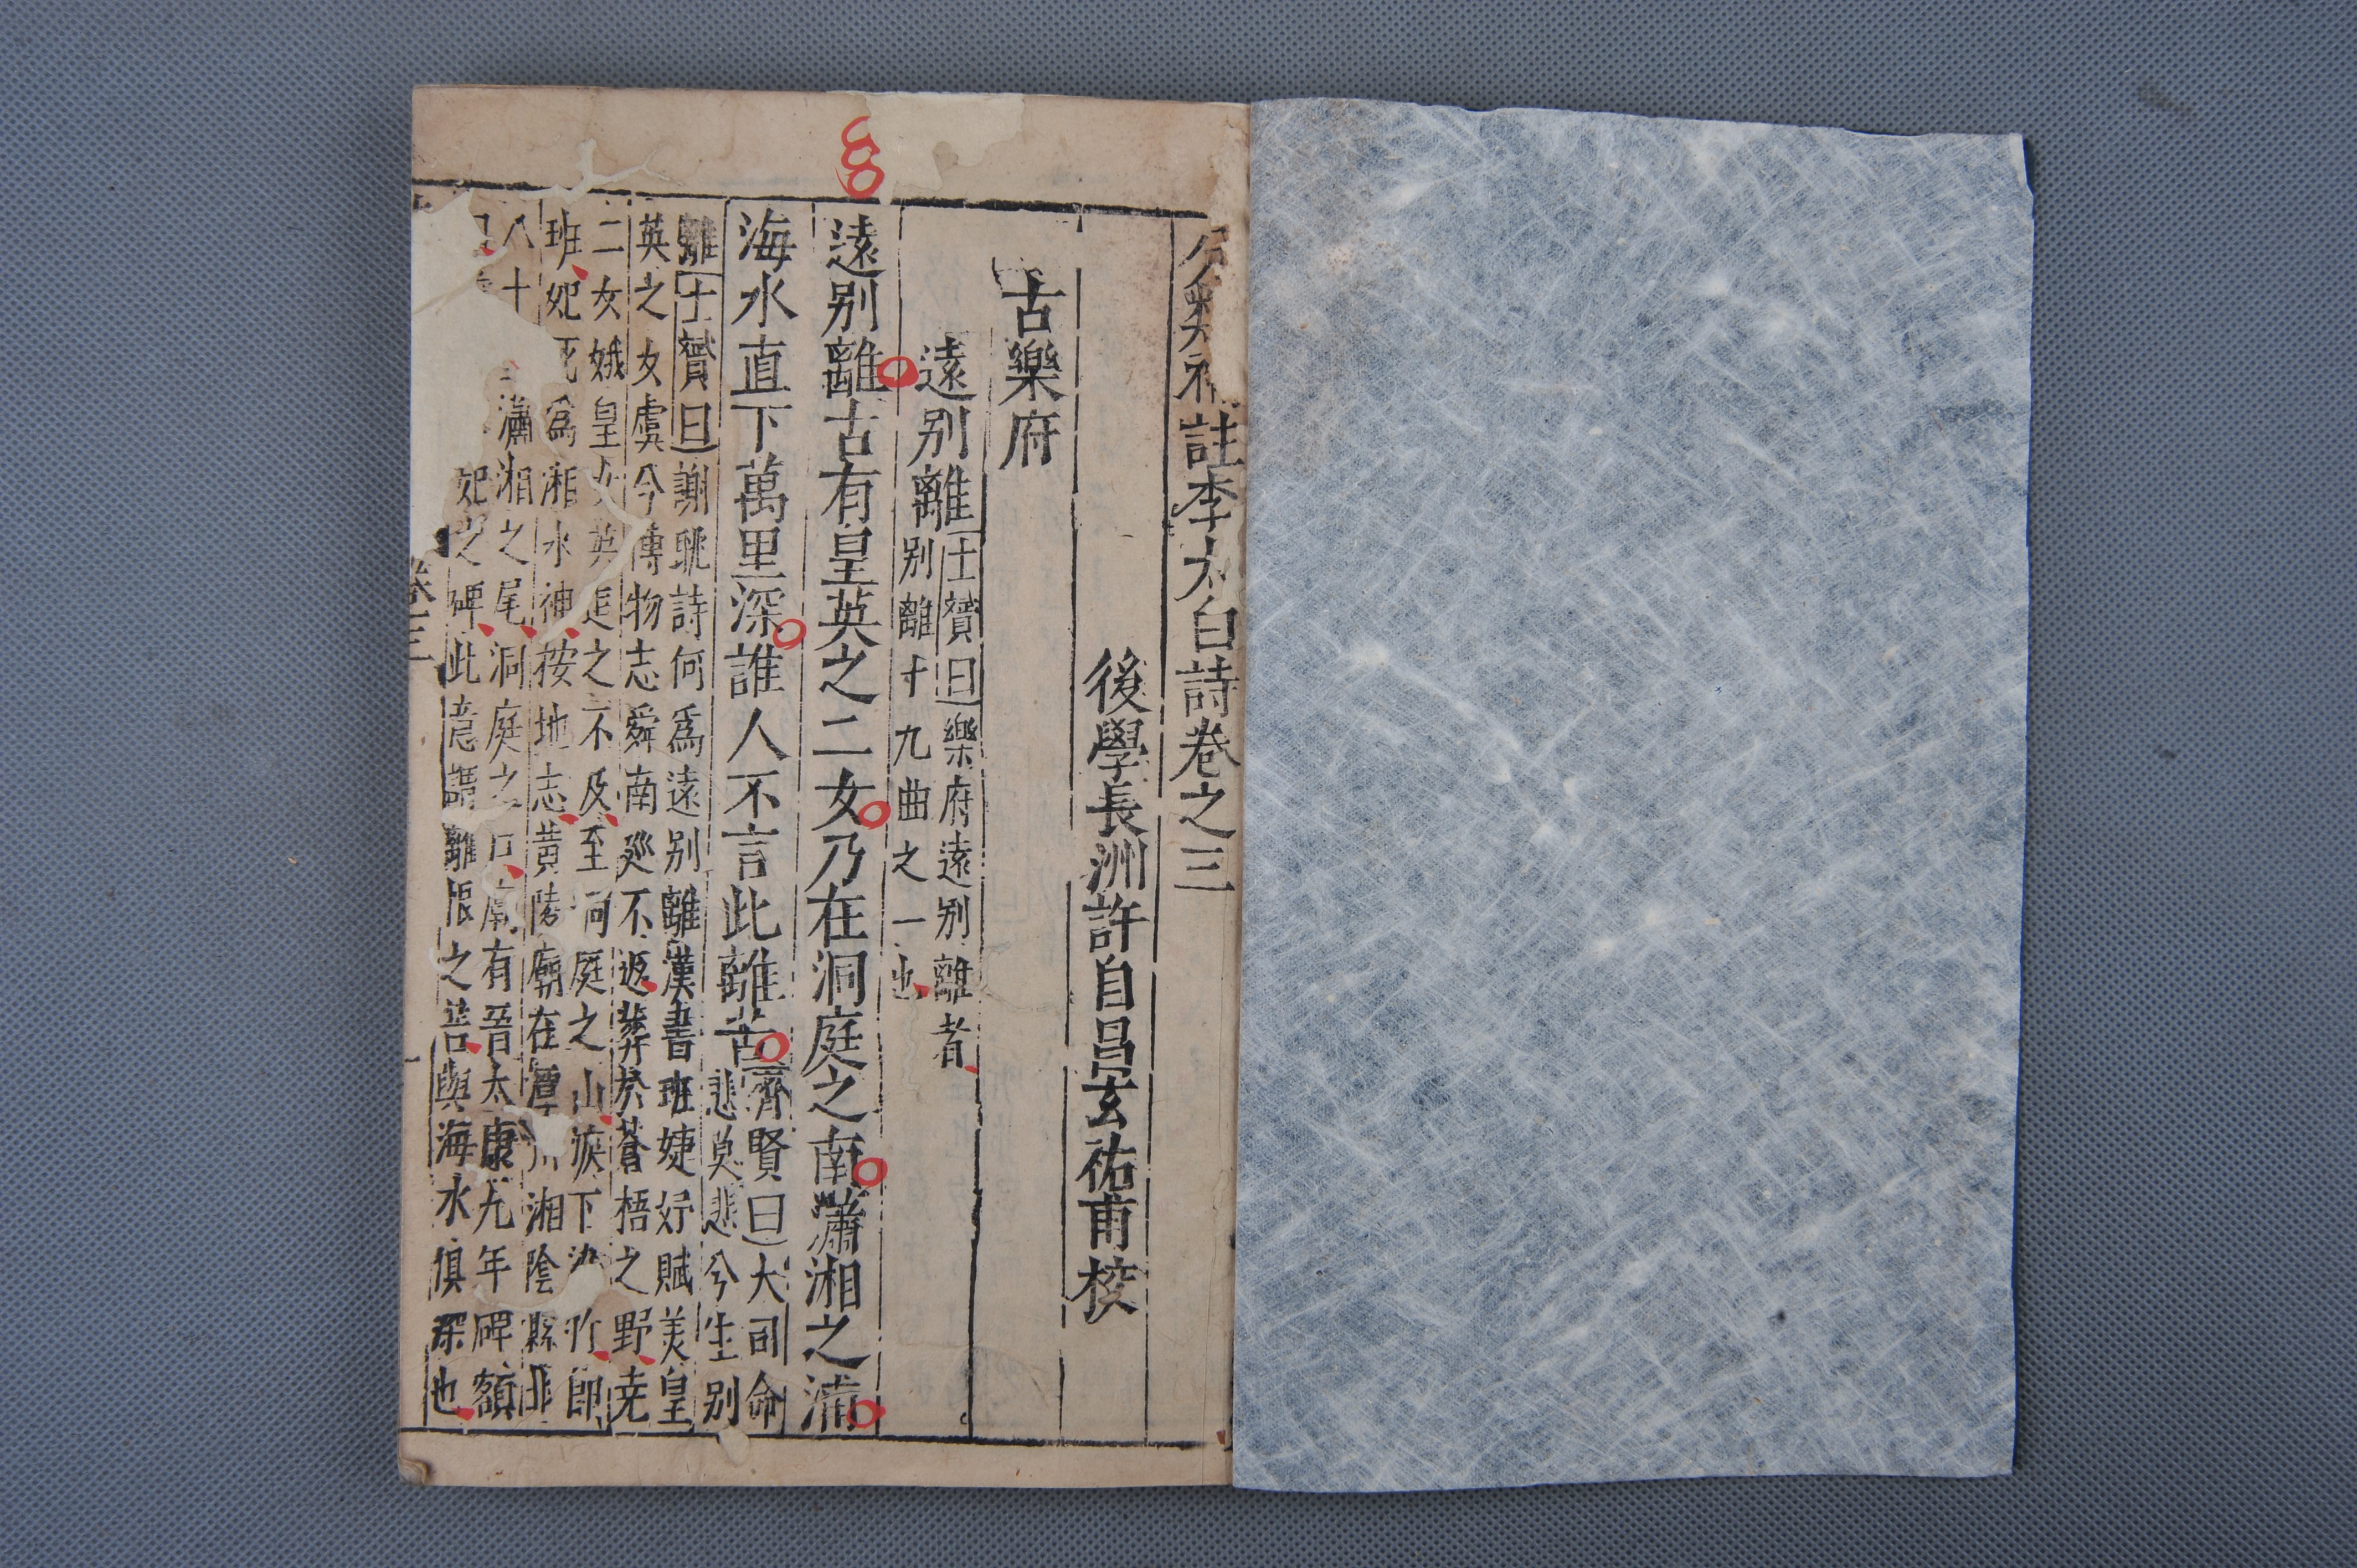 分類補註李太白詩卷之三
後學長洲許自昌玄祐甫校
古樂府
遠別離
士贇曰樂府遠別離者
別離十九曲之一也
遠別離古有皇英之二女乃在洞庭之南瀟湘之浦
海水直下萬里深誰人不言此離苦
齊賢曰大司命
悲莫悲兮生別
離士贇曰謝朓詩何爲遠別離漢書班婕妤賦美皇
英之女虞今傳物志舜南廵不返葬於蒼梧之野尭
二女娥皇女英追之不及至洞庭之山淚下染竹即
班妃死爲湘水神按地志黃陵廟在潭州湘陰縣北
八十瀟湘之尾洞庭之口廟有晉太康九年碑額
妃之碑此意謂離恨之苦與海水俱深也
卷三
一